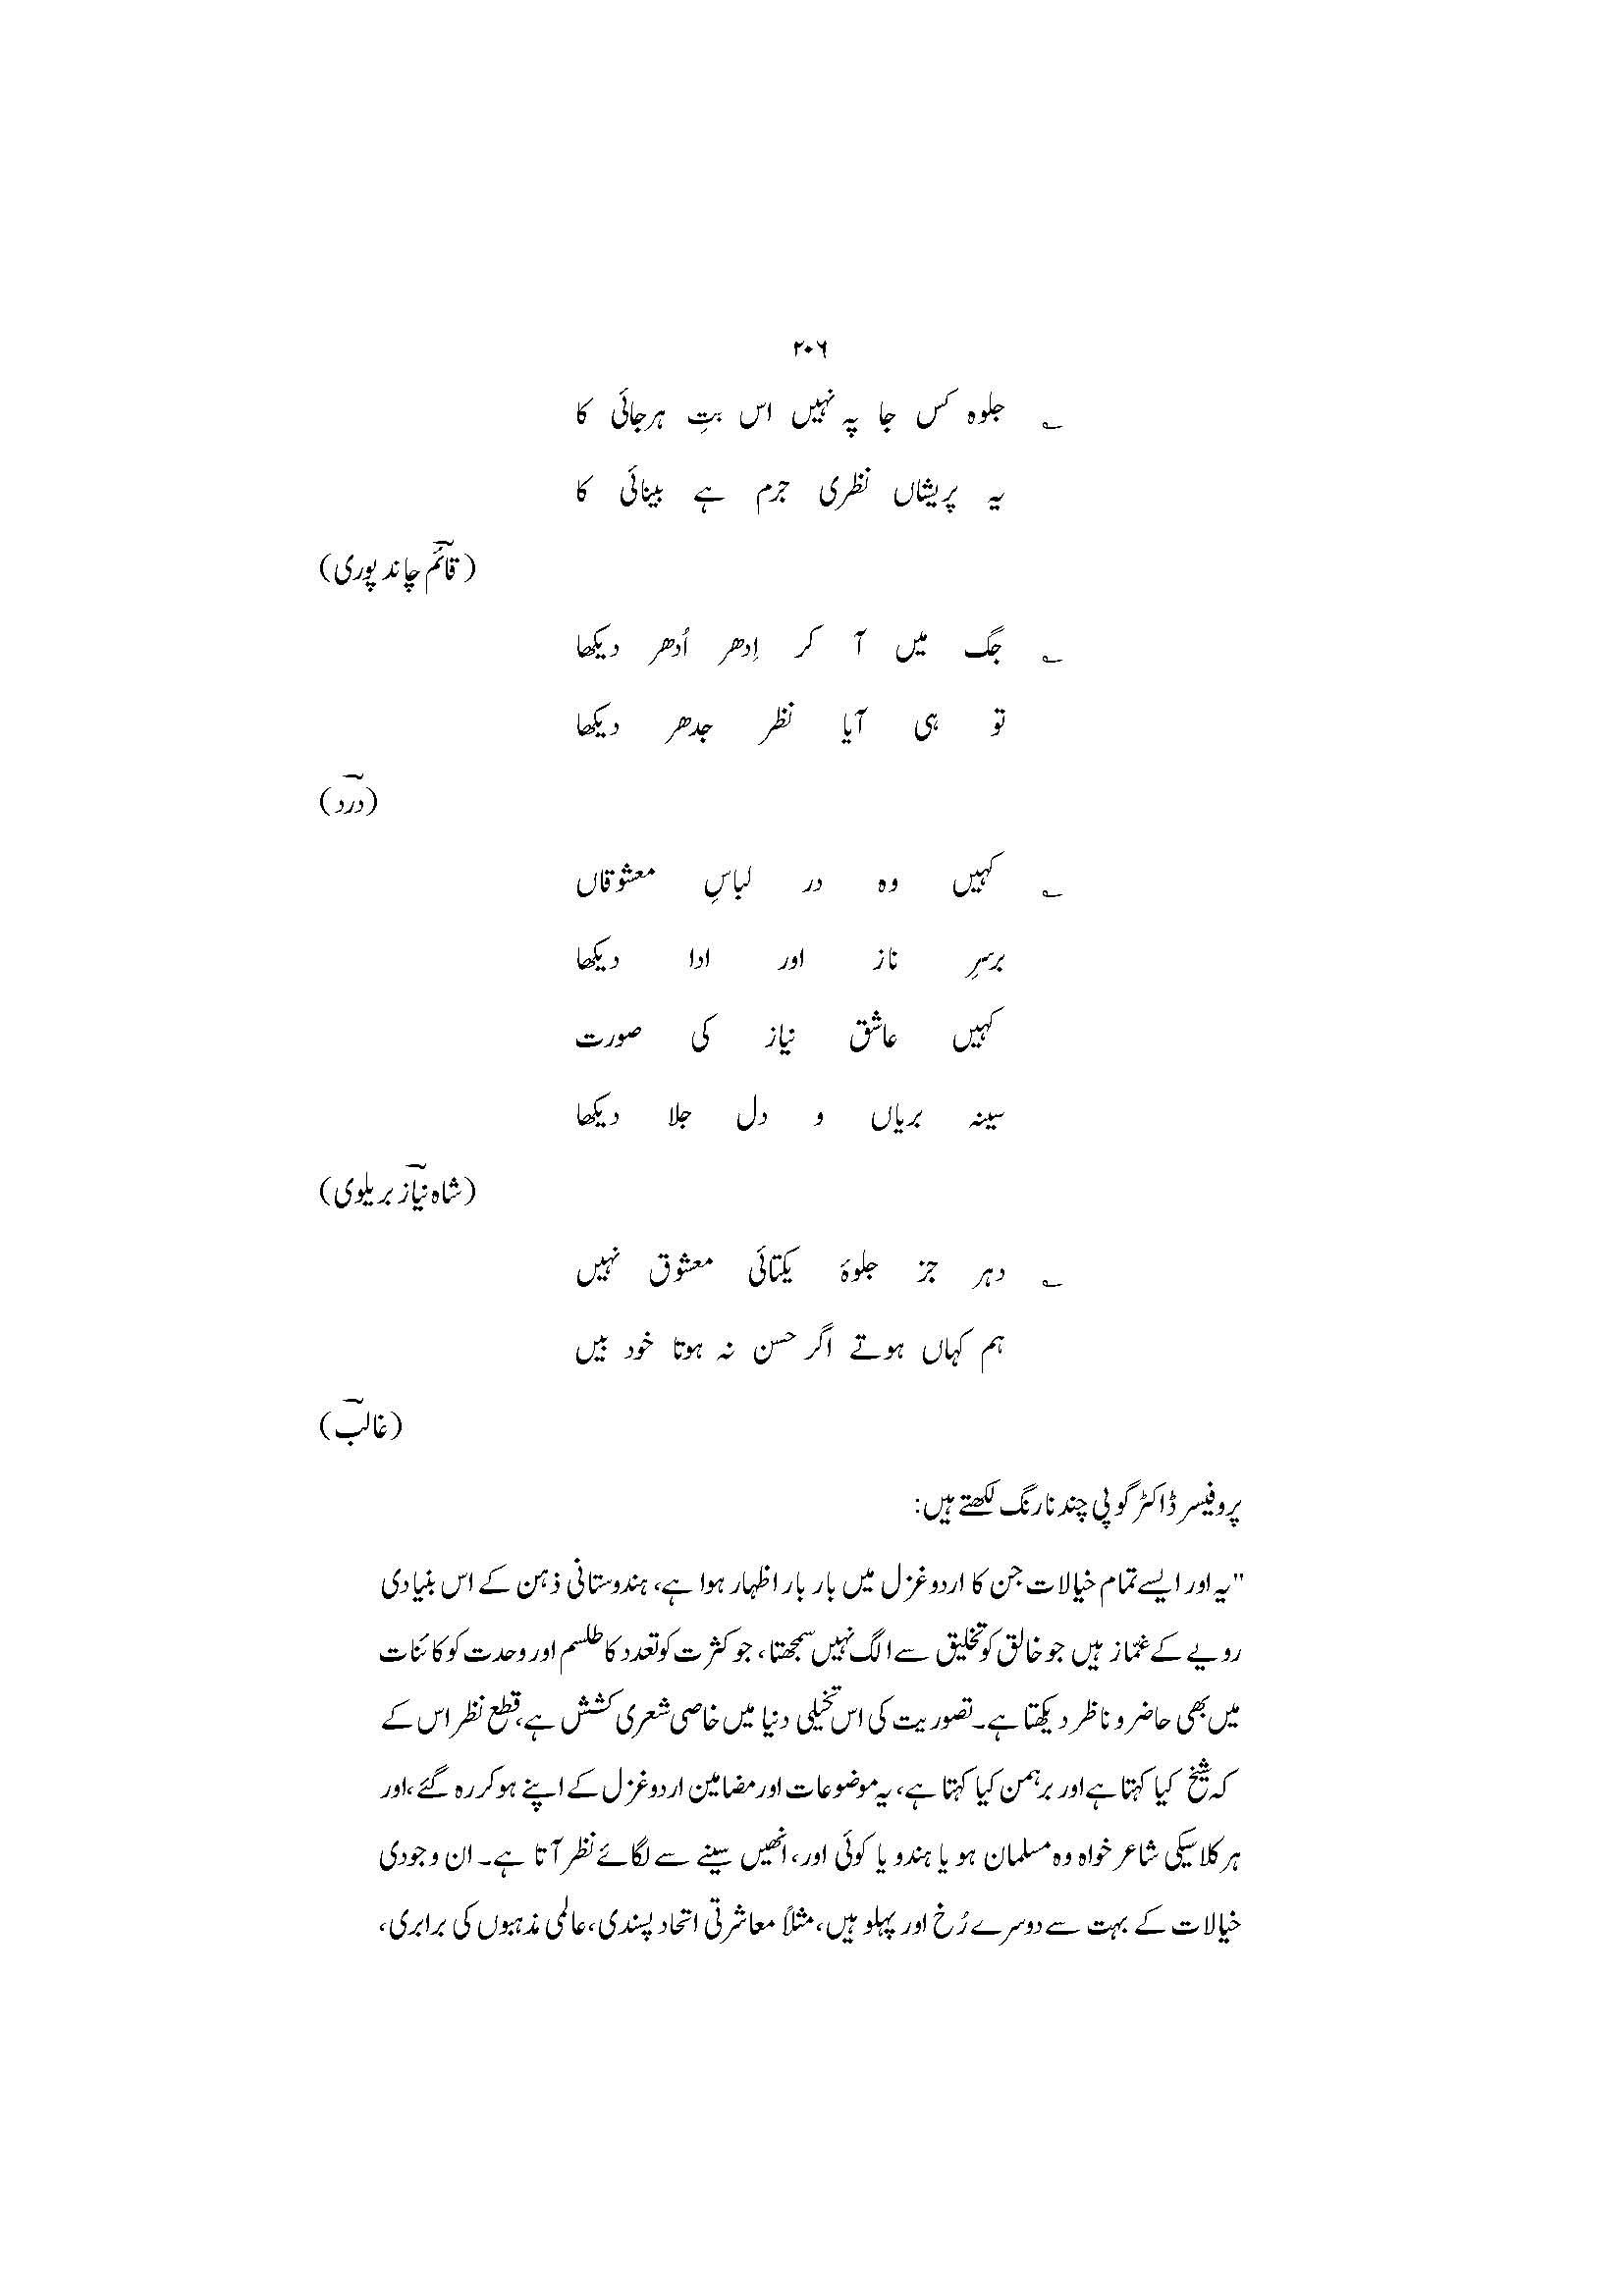 ۲۰۶
؎ جلوہ کس جا پہ نہیں اس بتِ ہرجائی کا
یہ پریشاں نظری جرم ہے بینائی کا
(قائمؔ چاند پوری)
؎ جگ میں آ کر اِدھر اُدھر دیکھا
تو ہی آیا نظر جدھر دیکھا
(دردؔ)
؎ کہیں وہ در لباسِ معشوقاں
برسرِ ناز اور ادا دیکھا
کہیں عاشق نیاز کی صورت
سینہ بریاں و دل جلا دیکھا
(شاہ نیازؔ بریلوی)
؎ دہر جز جلوۂ یکتائی معشوق نہیں
ہم کہاں ہوتے اگر حسن نہ ہوتا خود بیں
(غالبؔ)
پروفیسر ڈاکٹر گوپی چند نارنگ لکھتے ہیں:
"یہ اور ایسے تمام خیالات جن کا اردو غزل میں بار بار اظہار ہوا ہے، ہندوستانی ذہن کے اس بنیادی
رویے کے غمّاز ہیں جو خالق کو تخلیق سے الگ نہیں سمجھتا، جو کثرت کو تعدد کا طلسم اور وحدت کو کائنات
میں بھی حاضر و ناظر دیکھتا ہے۔ تصوریت کی اس تخیلی دنیا میں خاصی شعری کشش ہے، قطع نظر اس کے
کہ شیخ کیا کہتا ہے اور برہمن کیا کہتا ہے، یہ موضوعات اور مضامین اردو غزل کے اپنے ہو کر رہ گئے، اور
ہر کلاسیکی شاعر خواہ وہ مسلمان ہو یا ہندو یا کوئی اور، انھیں سینے سے لگائے نظر آتا ہے۔ ان وجودی
خیالات کے بہت سے دوسرے رُخ اور پہلو ہیں، مثلاً معاشرتی اتحاد پسندی، عالمی مذہبوں کی برابری،